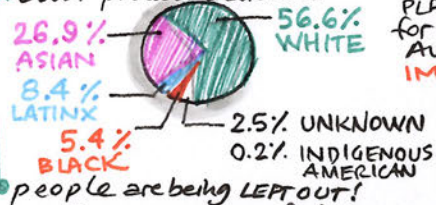 26.9% ASIAN
8.4% LATINX
5.4% BLACK
56.6% WHITE
2.5% UNKNOWN
0.2% INDIGENOUS AMERICAN
for
people are being LEFT OUT!